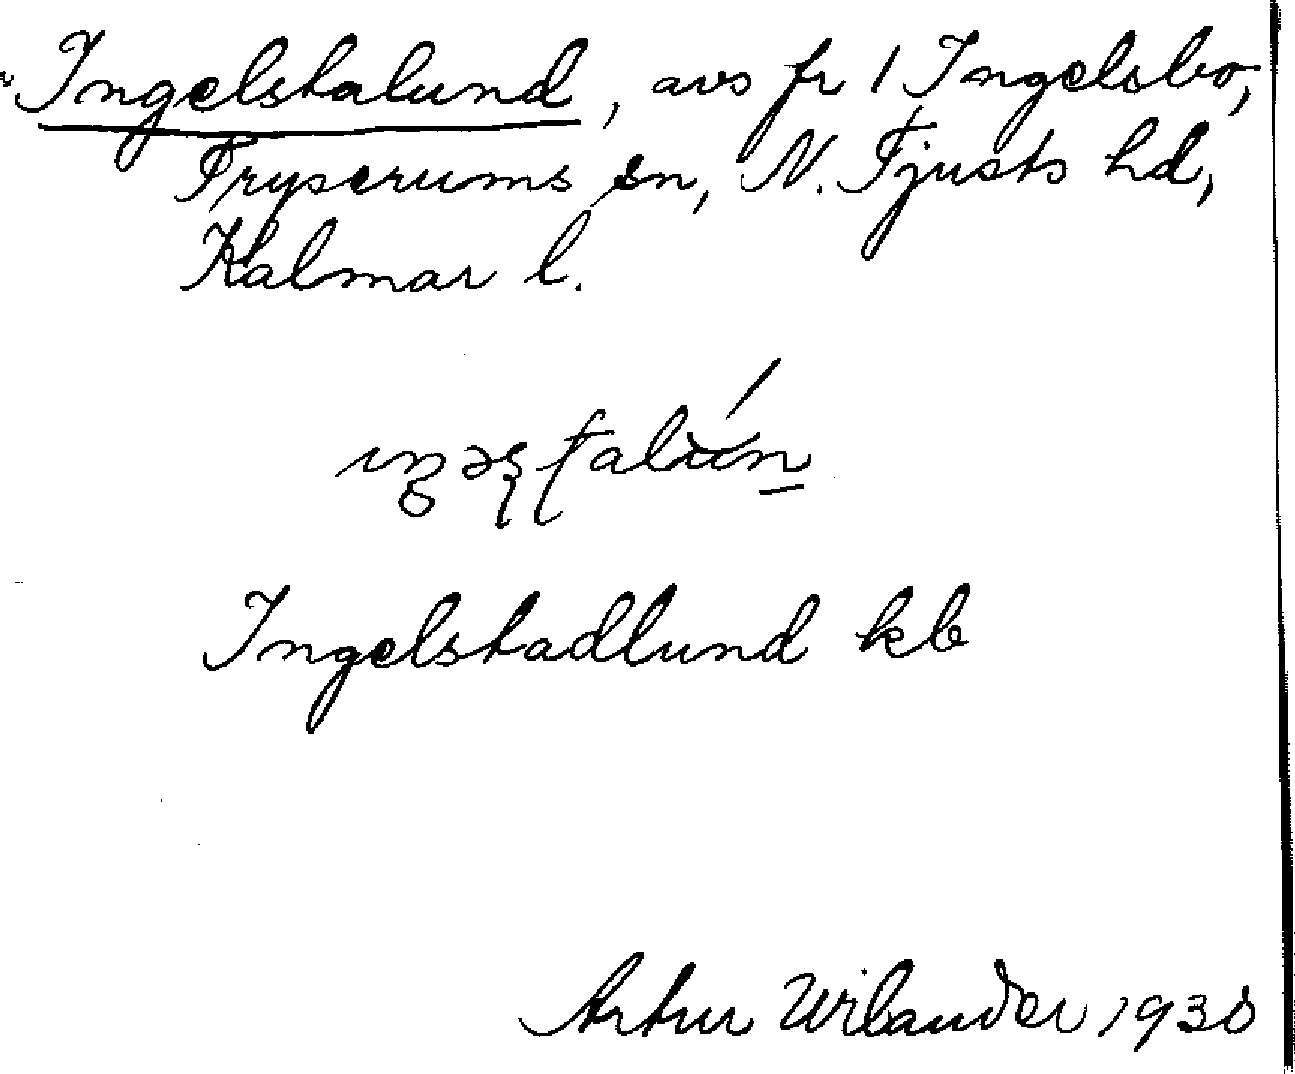 Ingelstalund, avs fr 1 Ingelsbo,
Tryserums sn, N. Tjusts hd,
Kalmar l.
Ingelstadlund kb
Artur Wilander 1938